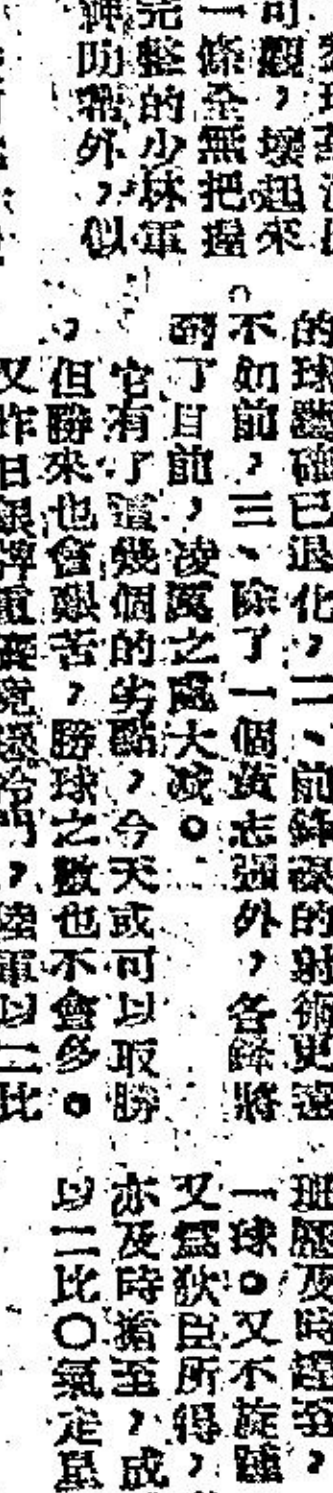 可觀，壞起來
一條全無把握
完整的少林軍
防澀外，似
的球藝確已退化，二、前鋒線的射術更遠
不如前，三、除了一個黃志強外，各鋒將
到了目前，凌厲之處大减。
它有了這幾個的劣點，今天或可以取勝
，但勝來也會艱苦，勝球之數也不會多。
又昨日銀牌重賽竟爆冷門，陸軍以二比
及時趕至，
一球。又不旋踵，
又爲狄臣所得，
亦及時搶至，成
以二比〇氣走